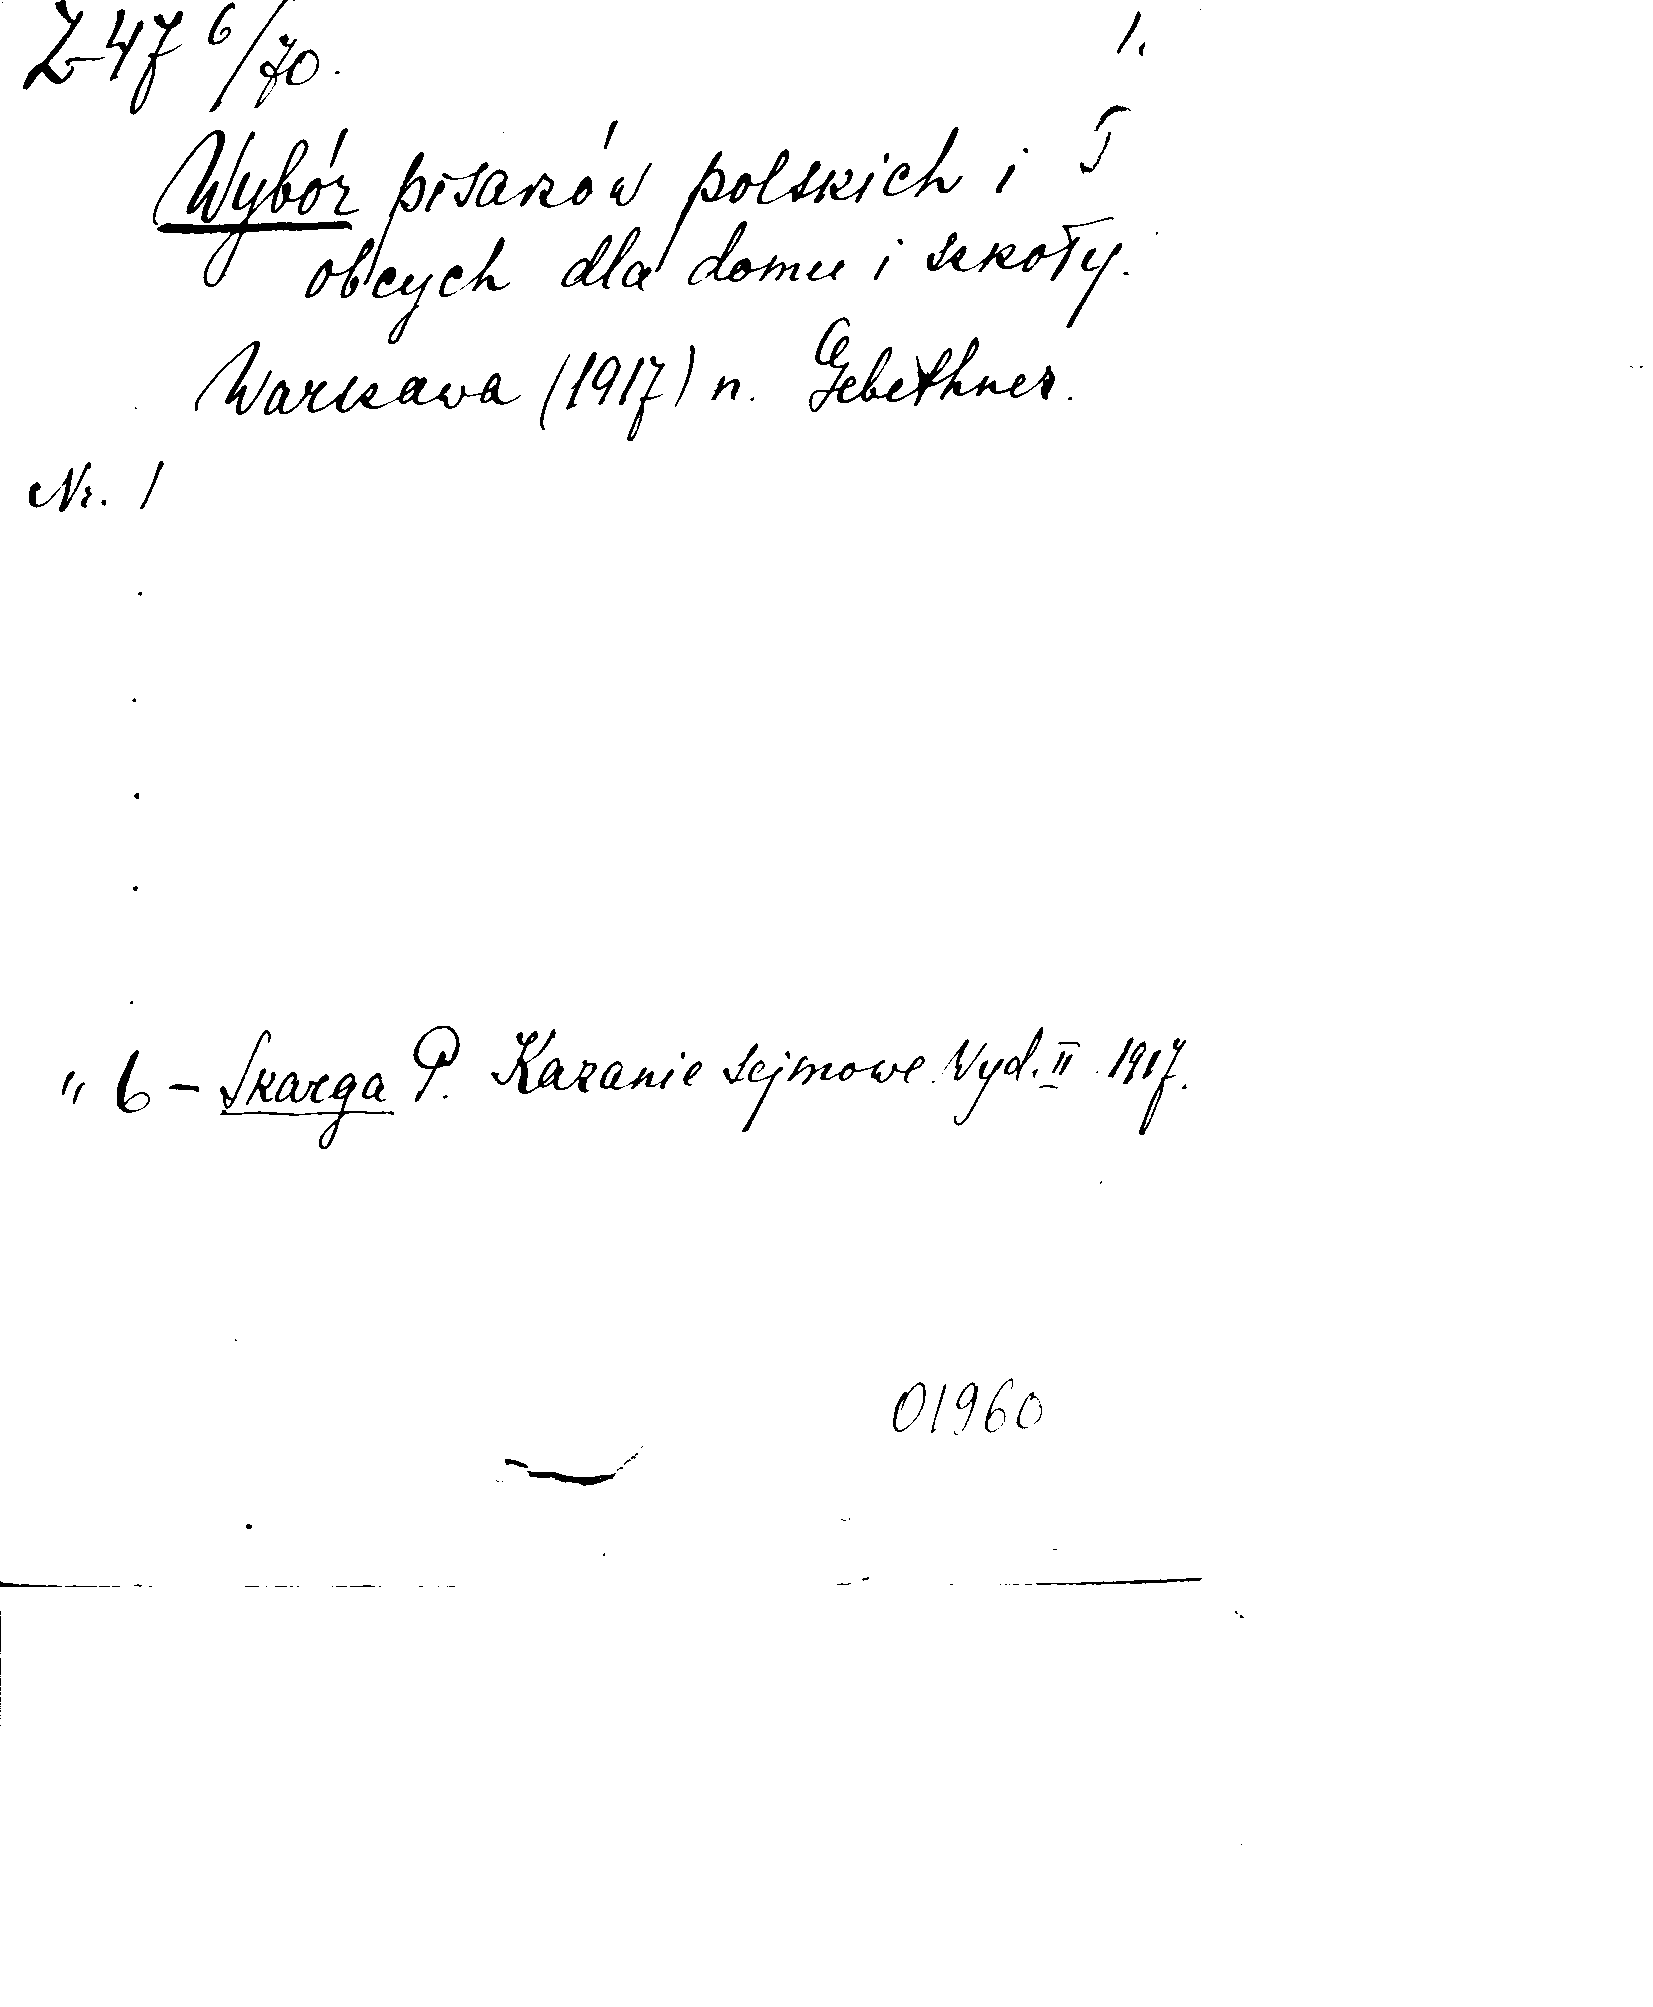 Z-47 6/70. 1.
Wybór pisarzów polskich i
obcych dla domu i szkoły.
Warszawa (1917) n. Gebethner.
Nr. 1
" 6 - Skarga P. Kazanie sejmowe Wyd. II 1917.
01960